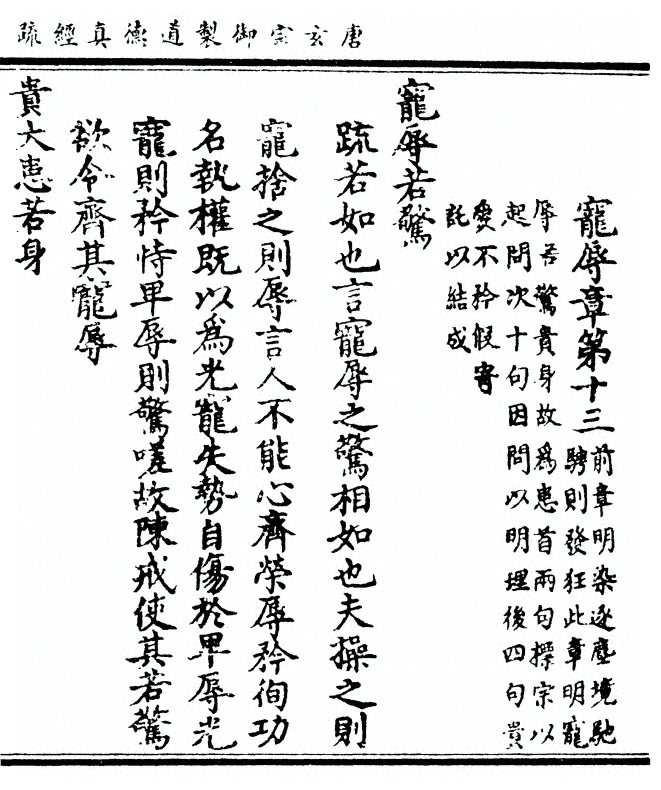 唐玄宗御製道德真經疏
寵辱章第十三
前章明染逐塵境馳
騁則發狂此章明寵
辱若驚貴身故為患首兩句摽宗以
起問次十句因問以明理後四句貴
愛不矜假寄
託以結成
寵辱若驚
疏若如也言寵辱之驚相如也夫操之則
寵捨之則辱言人不能心齊榮辱矜徇功
名執權既以為光寵失勢自傷於卑辱光
寵則矜恃卑辱則驚嗟故陳戒使其若驚
欲令齊其寵辱
貴大患若身